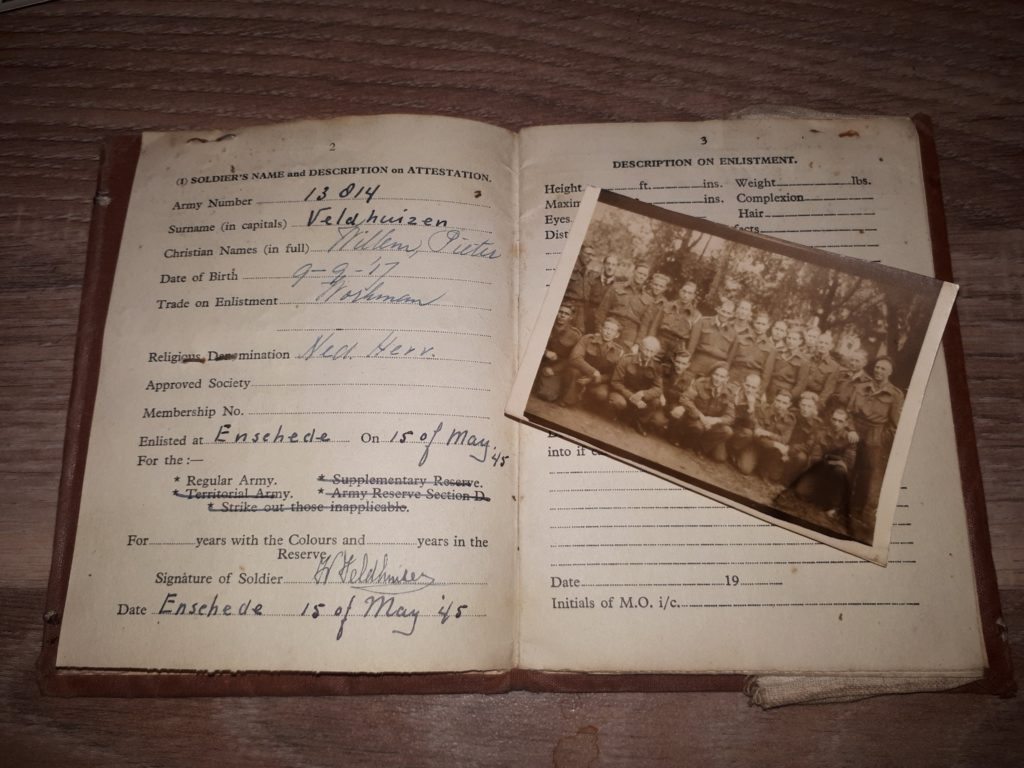 2
(1) SOLDIER'S NAME and DESCRIPTION on ATTESTATION.
Army Number 13814
Surname (in capitals) Veldhuizen
Christian Names (in full) Willem, Pieter
Date of Birth 9-9-'17
Trade on Enlistment
Religious Denomination Ned. Herv.
Approved Society
Membership No.
Enlisted at Enschede On 15 of May '45
For the :—
* Regular Army. * Supplementary Reserve.
* Territorial Army. * Army Reserve Section D.
* Strike out those inapplicable.
For years with the Colours and years in the
Reserve
Signature of Soldier W Veldhuizen
Date Enschede 15 of May '45
3
DESCRIPTION ON ENLISTMENT.
Height ft. ins. Weight lbs.
ins. Complexion
Eyes Hair
into if
Date 19
Initials of M.O. i/c.